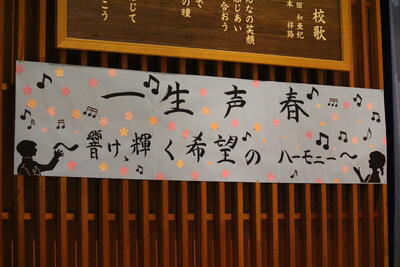 校歌
田 和亜紀
本 祥路
んなの笑顔
じあい
合おう
で
の瞳
じて
こう
一生声春
響け、輝く希望のハーモニー〜